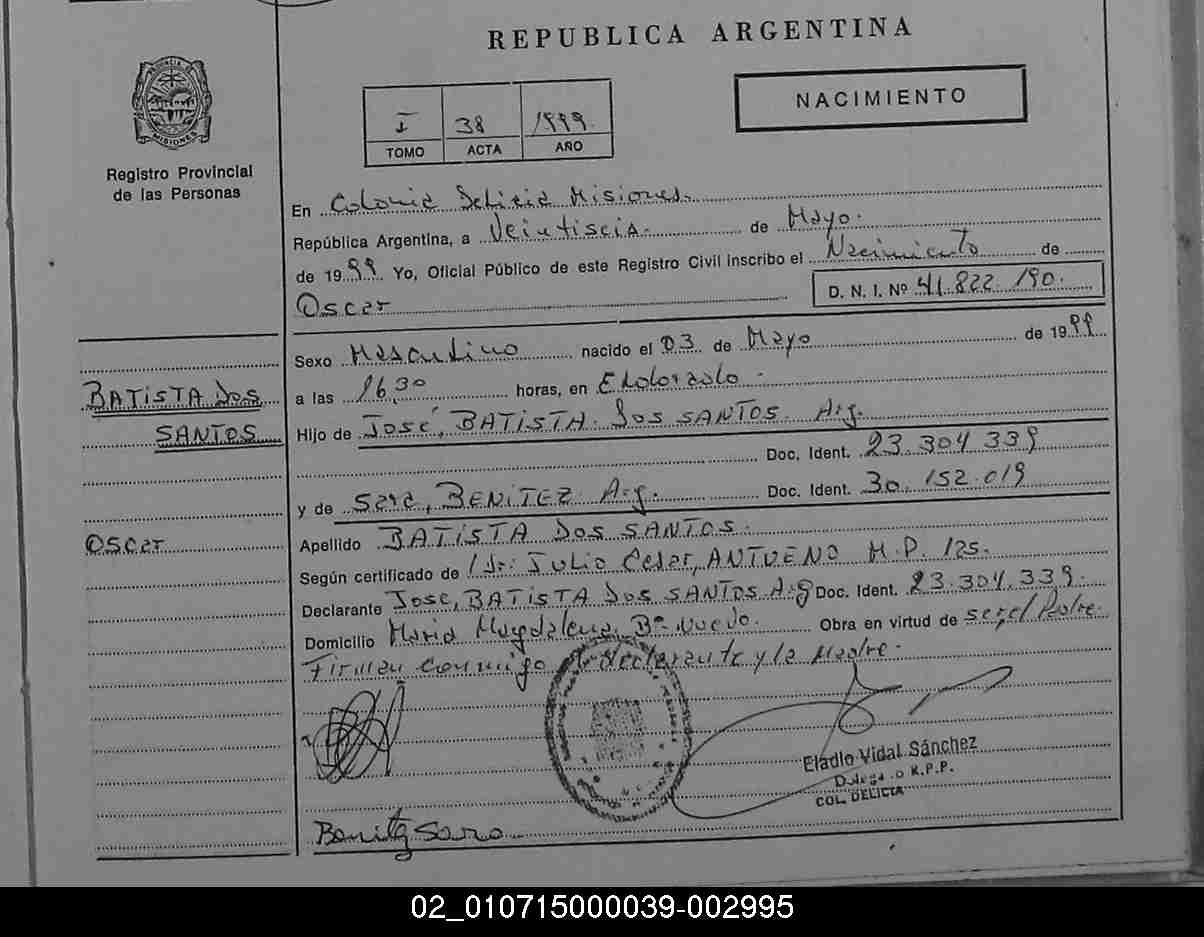 REPUBLICA ARGENTINA
PROVINCIA DE
MISIONES
Registro Provincial
de las Personas
I 38 1999.
TOMO ACTA AÑO
NACIMIENTO
En Colonia Delicia Misiones.
República Argentina, a Veintiseis. de Mayo.
de 1999. Yo, Oficial Público de este Registro Civil inscribo el Nacimiento de
Oscar D. N. I. Nº 41.822.190.
Sexo Masculino nacido el 03 de Mayo de 1999
BATISTA DOS
SANTOS
a las 16,30 horas, en Eldorado.
Hijo de José, BATISTA DOS SANTOS. Arg.
Doc. Ident. 23.304.339
y de Sara, BENITEZ Arg. Doc. Ident. 30.152.019
Oscar
Apellido BATISTA DOS SANTOS.
Según certificado de Dr: Julio Cesar, ANTUENO M.P. 125.
Declarante Jose, BATISTA DOS SANTOS Arg Doc. Ident. 23.304.339.
Domicilio Maria Magdalena, Bº Nuevo. Obra en virtud de ser el Padre.
Firman conmigo el declarante y la Madre.
Eladio Vidal Sánchez
Delegado R.P.P.
COL. DELICIA
Benitez Sara
02_010715000039-002995